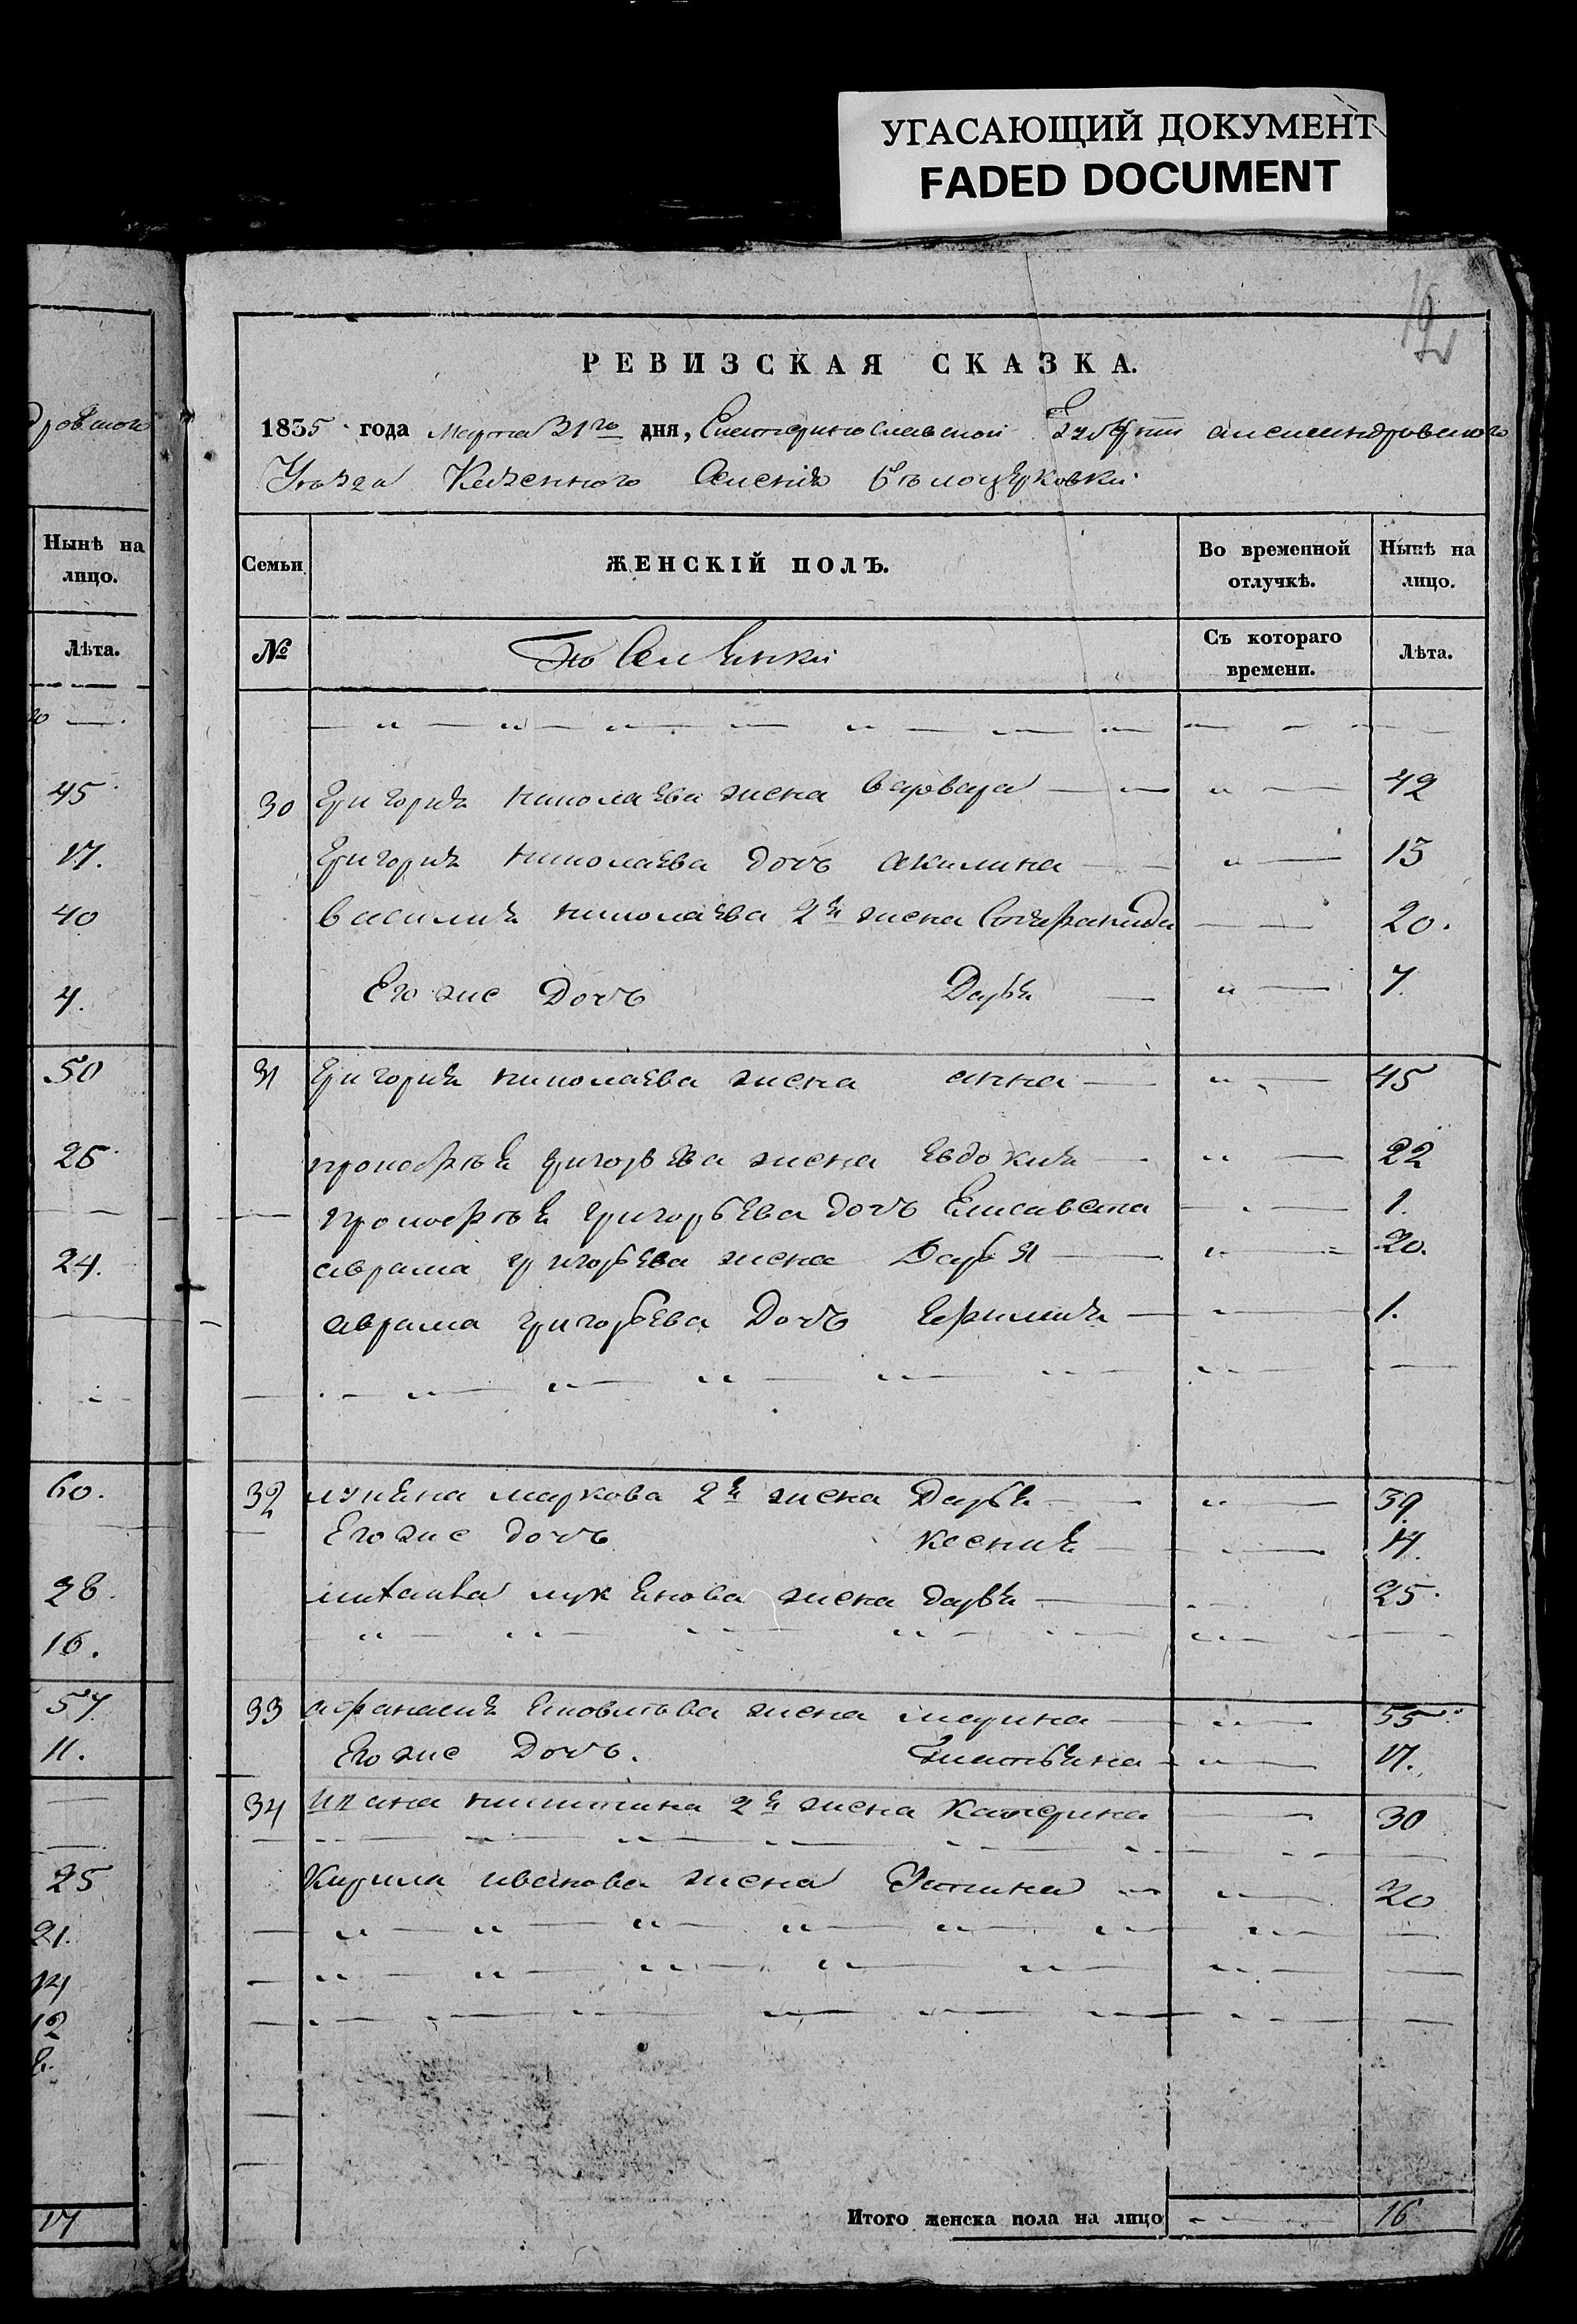 УГАСАЮЩИЙ ДОКУМЕНТ
FADED DOCUMENT
РЕВИЗСКАЯ СКАЗКА.
1835 года Марта 31го дня, Екатеринославской Губерніи александровского
Уезда Казенного Селенія Белоцерковки
дровского
Нынѣ на лицо.
Лѣта.
45
17.
40
4.
50
25
24.
60.
28.
16.
57
11.
25
21.
14
12
17
Семьи
ЖЕНСКІЙ ПОЛЪ.
Во временной отлучкѣ.
Нынѣ на лицо.
№
Поселянки
Съ котораго времени.
Лѣта.
30 Григорія николаева жена варвара 42
Григорія николаева дочь акилина 13
василия николаева 2я жена 20.
Его же Дочь Дарья 7.
31 Григория николаева жена анна 45
прокофья григорьева жена евдокия 22
прокофья григорьева дочь Елисавета 1.
аврама григорьева жена Дарья 20.
аврама григорьева Дочь 1.
32 лукьяна маркова 2я жена Дарья 39
Его же дочь ксения 14.
михайла лукьянова жена дарья 25.
33 афанасия жена марина 55
Его же Дочь. 17.
34 ивана никитина 2я жена Катерина 30
Кирила иванова жена Устина 20
Итого женска пола на лицо 16